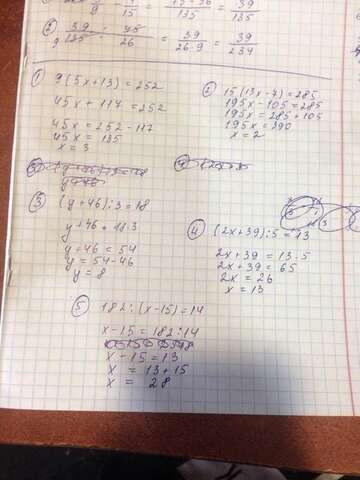 135
② 39/135 · 45/26 = 39/26·9 = 39/234
① 9(5x+13)=252
45x+117=252
45x=252-117
45x=135
x=3
② 15(13x-7)=285
195x-105=285
195x=285+105
195x=390
x=2
③ (y+46):3=18
y+46=18·3
y+46=54
y=54-46
y=8
④ (2x+39):5=13
2x+39=13·5
2x+39=65
2x=26
x=13
⑤ 182:(x-15)=14
x-15=182:14
x-15=13
x=13+15
x=28